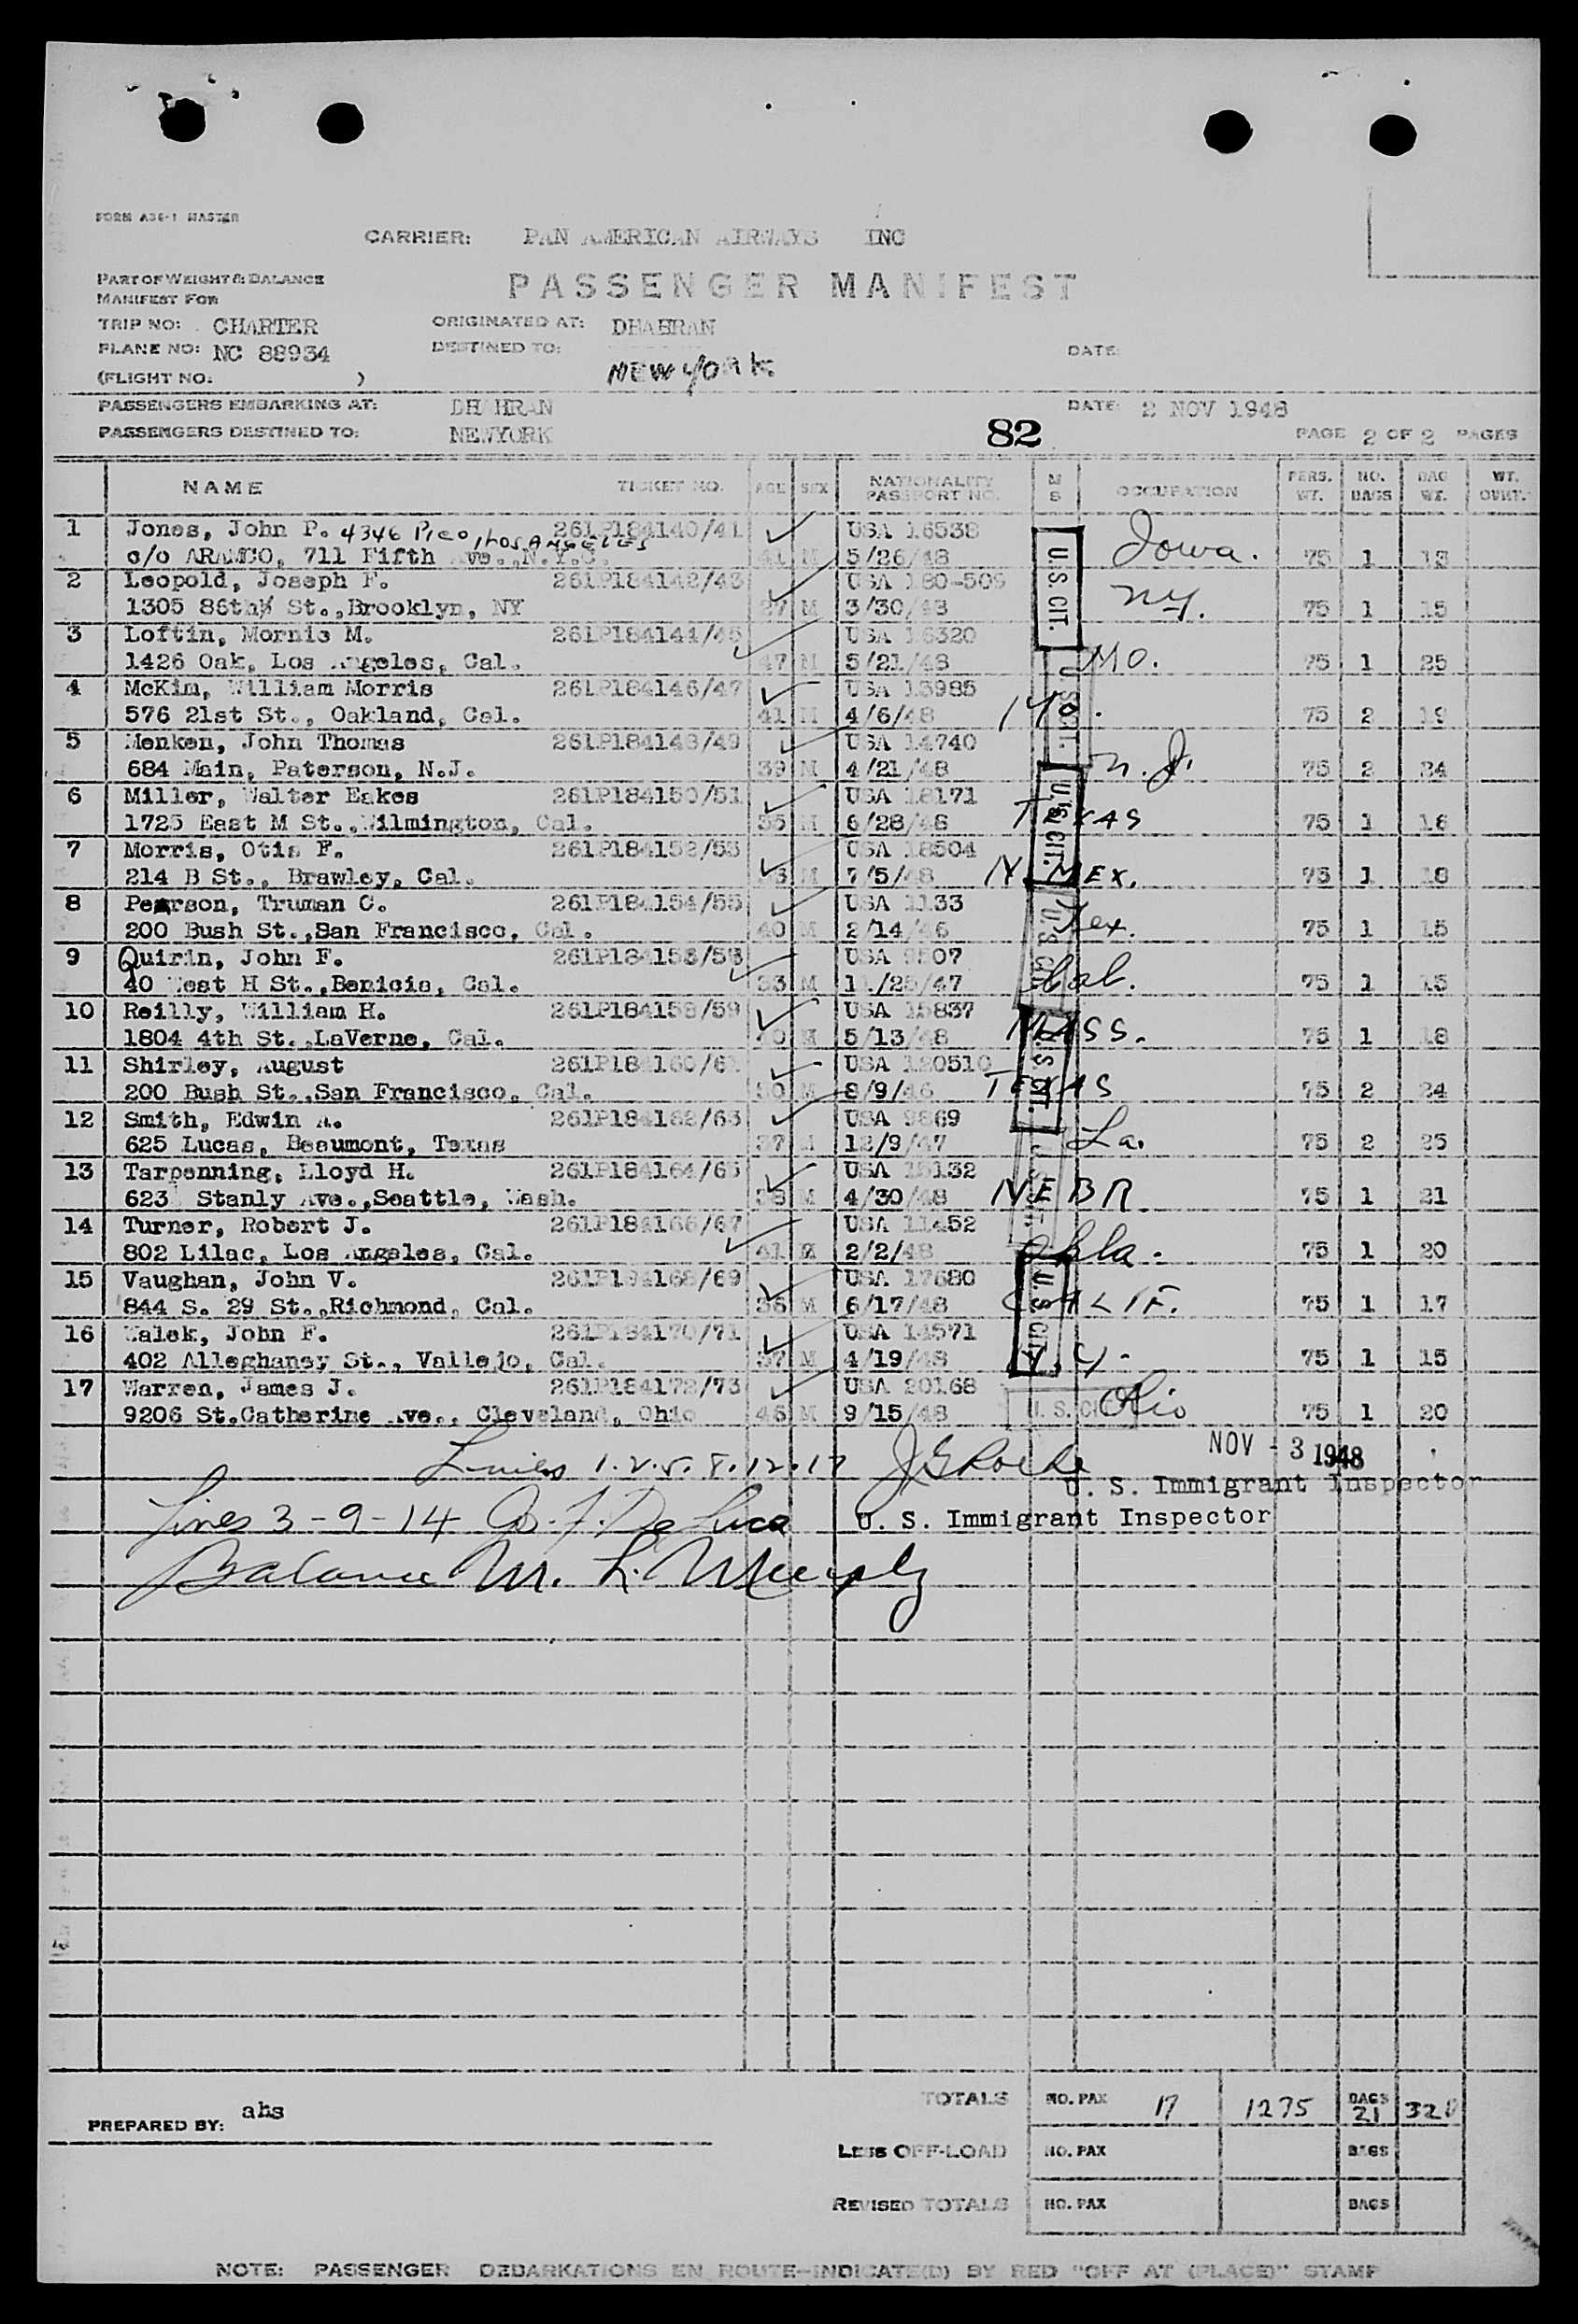 FORM A36-1 MASTER
CARRIER: PAN AMERICAN AIRWAYS INC
PART OF WEIGHT & BALANCE
MANIFEST FOR
PASSENGER MANIFEST
TRIP NO: CHARTER ORIGINATED AT: DHAHRAN
PLANE NO: NC 88934 DESTINED TO: NEW YORK DATE:
(FLIGHT NO: )
PASSENGERS EMBARKING AT: DHAHRAN DATE: 2 NOV 1948
PASSENGERS DESTINED TO: NEWYORK 82 PAGE 2 OF 2 PAGES
NAME TICKET NO. AGE SEX NATIONALITY PASSPORT NO. M S OCCUPATION PERS. WT. NO. BAGS BAG WT. WT. OVWT.
1 Jones, John P. 4346 Pico, Los Angeles 261P184140/41 USA 16538
c/o ARAMCO, 711 Fifth Ave.,N.Y.C. 41 M 5/26/48 U.S CIT. Iowa. 75 1 13
2 Leopold, Joseph F. 261P184142/43 USA 180-509
1305 86th St.,Brooklyn, NY 27 M 3/30/48 NY. 75 1 15
3 Loftin, Mornis M. 261P184144/45 USA 16320
1426 Oak, Los Angeles, Cal. 47 M 5/21/48 Mo. 75 1 25
4 McKim, William Morris 261P184146/47 USA 13985
576 21st St., Oakland, Cal. 41 M 4/6/48 U S CIT. 75 2 19
5 Menken, John Thomas 261P184148/49 USA 14740
684 Main, Paterson, N.J. 39 M 4/21/48 N.J. 75 2 24
6 Miller, Walter Eakes 261P184150/51 USA 18171
1725 East M St.,Wilmington, Cal. 35 M 6/28/48 U.S CIT. TEXAS 75 1 16
7 Morris, Otis F. 261P184152/53 USA 18504
214 B St., Brawley, Cal. M 7/5/48 N. MEX. 75 1 18
8 Pearson, Truman C. 261P184154/55 USA 1133
200 Bush St.,San Francisco, Cal. 40 M 2/14/46 U.S CIT. Tex. 75 1 15
9 Quirin, John F. 261P184156/58 USA 9507
40 West H St.,Benicia, Cal. 33 M 11/25/47 Cal. 75 1 15
10 Reilly, William H. 261P184158/59 USA 15837
1804 4th St.,LaVerne, Cal. M 5/13/48 U.S CIT. MASS. 75 1 18
11 Shirley, August 261P184160/61 USA 120510
200 Bush St.,San Francisco, Cal. M 8/9/46 TEXAS 75 2 24
12 Smith, Edwin A. 261P184162/63 USA 9869
625 Lucas, Beaumont, Texas 37 M 12/9/47 La. 75 2 25
13 Tarpenning, Lloyd H. 261P184164/65 USA 15132
623 Stanly Ave.,Seattle, Wash. M 4/30/48 U.S CIT. NEBR. 75 1 21
14 Turner, Robert J. 261P184166/67 USA 11452
802 Lilac, Los Angeles, Cal. 41 M 2/2/48 Okla. 75 1 20
15 Vaughan, John V. 261P194168/69 USA 17680
844 S. 29 St.,Richmond, Cal. 36 M 6/17/48 U.S CIT. CALIF. 75 1 17
16 Walek, John F. 261P184170/71 USA 14571
402 Alleghaney St., Vallejo, Cal. 37 M 4/19/48 N.Y. 75 1 15
17 Warren, James J. 261P184172/73 USA 20168
9206 St.Catherine Ave., Cleveland, Ohio 46 M 9/15/48 U. S. CIT. Ohio 75 1 20
Lines 1.2.5.8.12.17 J G Roche NOV - 3 1948
U. S. Immigrant Inspector
Lines 3-9-14 Jos. F. De Luca U. S. Immigrant Inspector
Balance M. L. Murphy
TOTALS NO. PAX 17 1275 BAGS 21 320
PREPARED BY: ahs
LESS OFF-LOAD NO. PAX BAGS
REVISED TOTALS NO. PAX BAGS
NOTE: PASSENGER DEBARKATIONS EN ROUTE-INDICATE(D) BY RED "OFF AT (PLACE)" STAMP